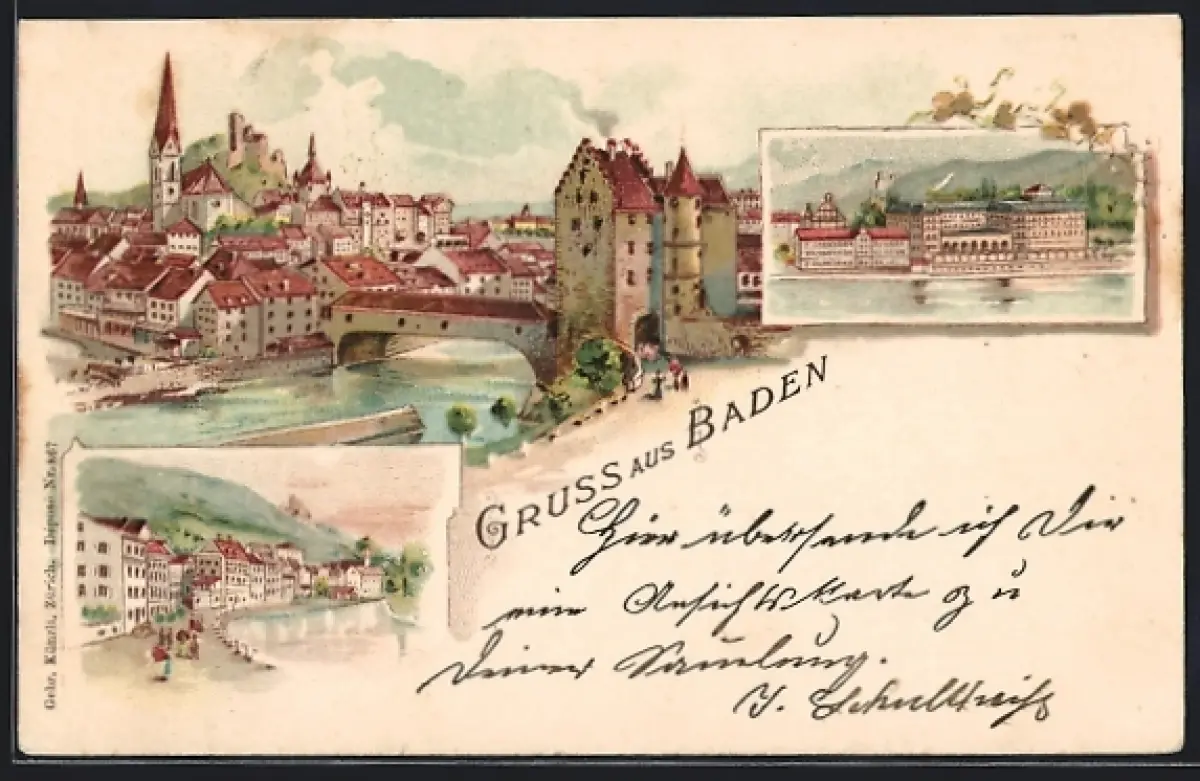 GRUSS AUS BADEN
Hier übersende ich Dir
eine Ansichtskarte zu
Deiner Samlung.
J. Schultheiß
Gebr. Künzli, Zürich. Dépose Nr. 867